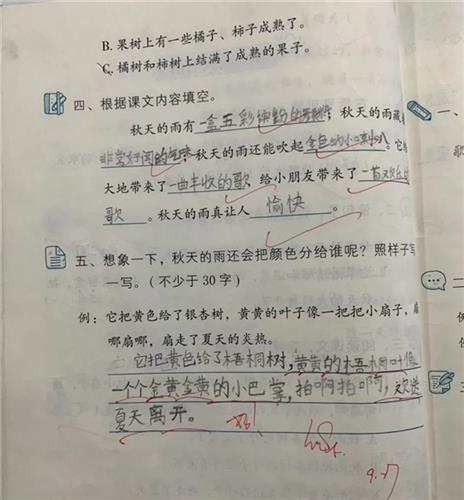 B. 果树上有一些橘子、柿子成熟了。
C. 橘树和柿树上结满了成熟的果子。
四、根据课文内容填空。
秋天的雨有 一盒五彩缤纷的颜料 ，秋天的雨藏
非常好闻的气味，秋天的雨还能吹起 金色的小喇叭 。它给
大地带来了 一曲丰收的歌 ，给小朋友带来了 一首欢乐的
歌 。秋天的雨真让人 愉快 。
五、想象一下，秋天的雨还会把颜色分给谁呢？照样子写
一写。（不少于30字）
例：它把黄色给了银杏树，黄黄的叶子像一把把小扇子，扇
哪扇哪，扇走了夏天的炎热。
它把黄色给了梧桐树，黄黄的梧桐叶像
一个个金黄金黄的小巴掌，拍啊拍啊，欢送
夏天离开。
9.17
一、
二
三